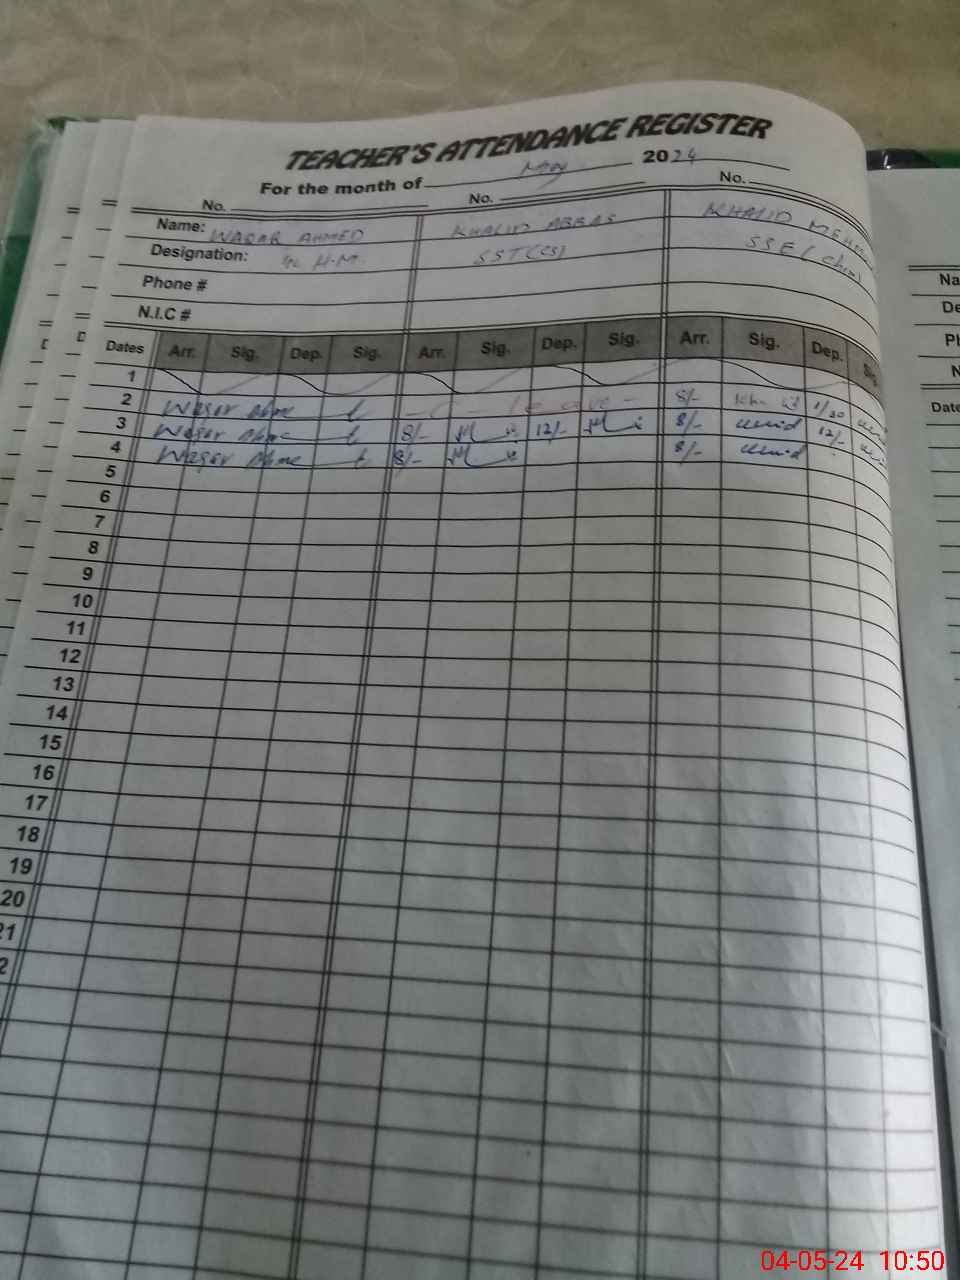 TEACHER'S ATTENDANCE REGISTER
For the month of May 2024
No. No. No.
Name: WAQAR AHMED KHALID ABBAS KHALID
Designation: H.M. SST(CS) SSE (Chem)
Phone #
N.I.C #
Dates Arr. Sig. Dep. Sig. Arr. Sig. Dep. Sig. Arr. Sig. Dep. Sig.
1
2 Waqar Ahmed leave 8/- 1/30
3 Waqar Ahmed 8/- 12/- 8/- 12/-
4 Waqar Ahmed 8/- 8/-
5
6
7
8
9
10
11
12
13
14
15
16
17
18
19
20
21
2
Na
De
Ph
N
Date
04-05-24 10:50